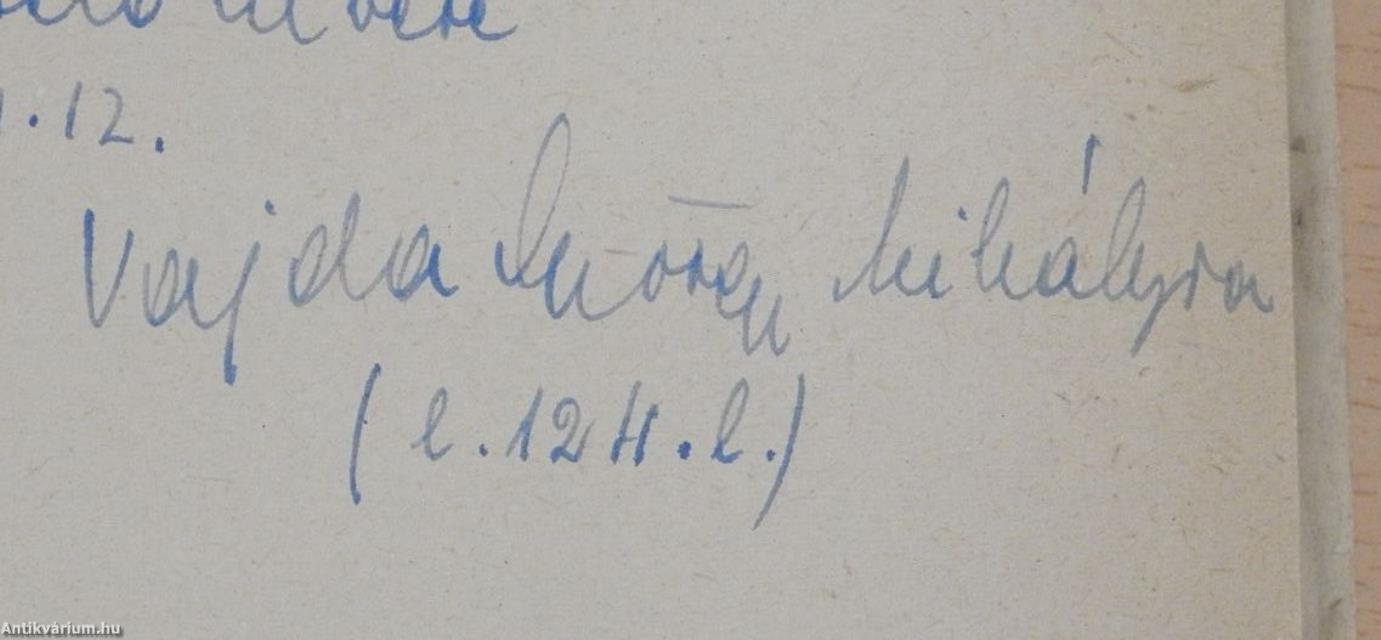 .12.
Vajda György Mihályra
(l. 124. l.)
Antikvárium.hu